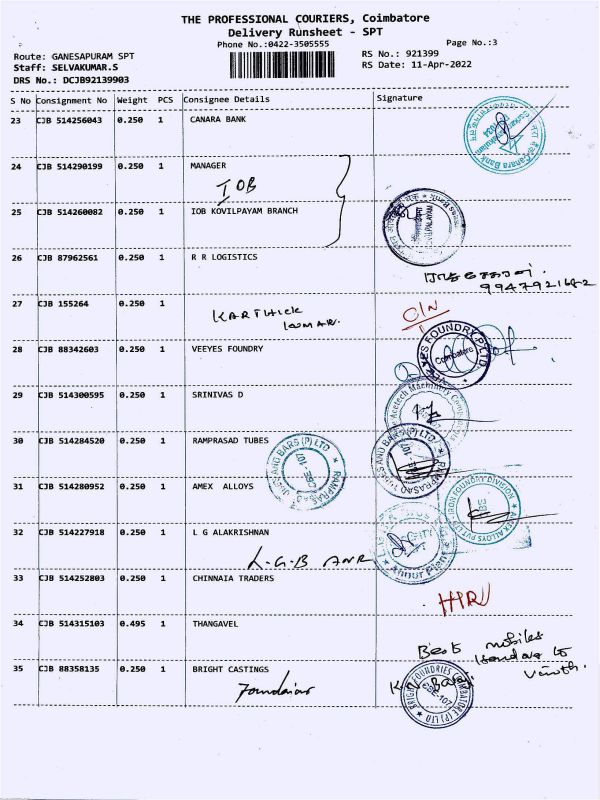 THE PROFESSIONAL COURIERS, Coimbatore
Delivery Runsheet - SPT
Phone No.:0422-3505555
Page No.:3
Route: GANESAPURAM SPT
RS No.: 921399
Staff: SELVAKUMAR.S
RS Date: 11-Apr-2022
DRS No.: DCJB92139903
S No Consignment No Weight PCS Consignee Details Signature
23 CJB 514256043 0.250 1 CANARA BANK
Canara Bank
24 CJB 514290199 0.250 1 MANAGER
IOB
25 CJB 514260082 0.250 1 IOB KOVILPAYAM BRANCH
26 CJB 87962561 0.250 1 R R LOGISTICS
27 CJB 155264 0.250 1
KARTHICK
KUMAR.
C/N
28 CJB 88342603 0.250 1 VEEYES FOUNDRY
VEEYES FOUNDRY (P) LTD
Coimbatore
29 CJB 514300595 0.250 1 SRINIVAS D
Acetech Machinery
30 CJB 514284520 0.250 1 RAMPRASAD TUBES
AND BARS (P) LTD
CBE-107
31 CJB 514280952 0.250 1 AMEX ALLOYS
IRON FOUNDRY DIVISION
32 CJB 514227918 0.250 1 L G ALAKRISHNAN
L.G.B ANR
33 CJB 514252803 0.250 1 CHINNAIA TRADERS
34 CJB 514315103 0.495 1 THANGAVEL
Best mobiles
35 CJB 88358135 0.250 1 BRIGHT CASTINGS
BRIGHT FOUNDRIES
COIMBATORE (P) LTD
CBE-107